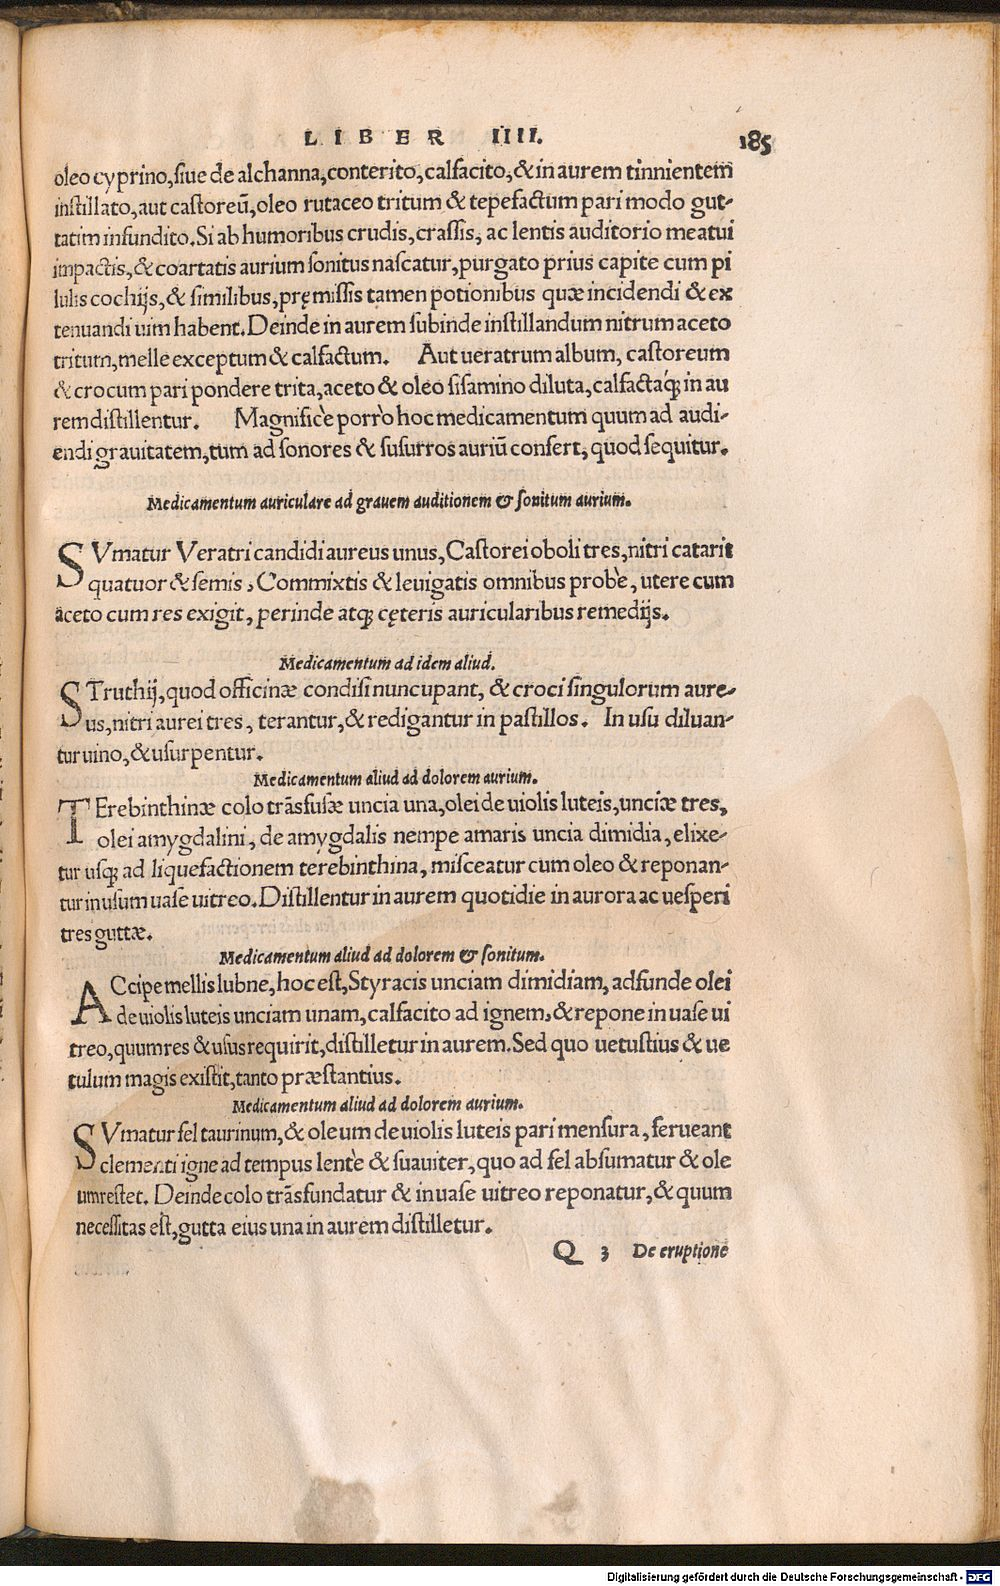 LIBER IIII. 185
oleo cyprino, siue de alchanna, conterito, calfacito, & in aurem tinnientem
instillato, aut castoreũ, oleo rutaceo tritum & tepefactum pari modo gut-
tatim infundito. Si ab humoribus crudis, crassis, ac lentis auditorio meatui
impactis, & coartatis aurium sonitus nascatur, purgato prius capite cum pi
lulis cochijs, & similibus, pręmissis tamen potionibus quæ incidendi & ex
tenuandi uim habent. Deinde in aurem subinde instillandum nitrum aceto
tritum, melle exceptum & calfactum. Aut ueratrum album, castoreum
& crocum pari pondere trita, aceto & oleo sisamino diluta, calfactaq́; in au
rem distillentur. Magnificè porrò hoc medicamentum quum ad audi-
endi grauitatem, tum ad sonores & susurros auriũ confert, quod sequitur.
Medicamentum auriculare ad grauem auditionem & sonitum aurium.
SVmatur Veratri candidi aureus unus, Castorei oboli tres, nitri catarit
quatuor & semis, Commixtis & leuigatis omnibus probè, utere cum
aceto cum res exigit, perinde atq; cęteris auricularibus remedijs.
Medicamentum ad idem aliud.
STruthij, quod officinæ condisi nuncupant, & croci singulorum aure-
us, nitri aurei tres, terantur, & redigantur in pastillos. In usu diluan-
tur uino, & usurpentur.
Medicamentum aliud ad dolorem aurium.
TErebinthinæ colo trãsfusæ uncia una, olei de uiolis luteis, unciæ tres,
olei amygdalini, de amygdalis nempe amaris uncia dimidia, elixe-
tur usq; ad liquefactionem terebinthina, misceatur cum oleo & reponan-
tur in usum uase uitreo. Distillentur in aurem quotidie in aurora ac uesperi
tres guttæ.
Medicamentum aliud ad dolorem & sonitum.
ACcipe mellis lubne, hoc est, Styracis unciam dimidiam, adfunde olei
de uiolis luteis unciam unam, calfacito ad ignem, & repone in uase ui
treo, quum res & usus requirit, distilletur in aurem. Sed quo uetustius & ue
tulum magis existit, tanto præstantius.
Medicamentum aliud ad dolorem aurium.
SVmatur fel taurinum, & oleum de uiolis luteis pari mensura, ferueant
clementi igne ad tempus lentè & suauiter, quo ad fel absumatur & ole
um restet. Deinde colo trãsfundatur & in uase uitreo reponatur, & quum
necessitas est, gutta eius una in aurem distilletur.
Q 3 De eruptione
Digitalisierung gefördert durch die Deutsche Forschungsgemeinschaft - DFG